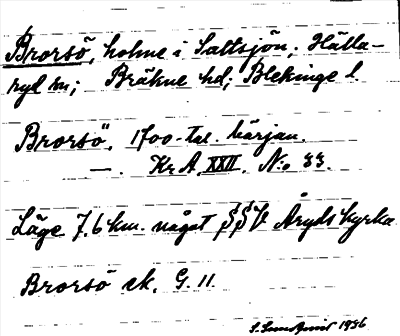 Brorsö, holme i Saltsjön; Hälla-
ryd sn; Bräkne hd; Blekinge l.
Brorsö, 1700-tal. början.
— . Kr. A. XXII. No 33.
Läge 7.6 km. något SSV Åryds kyrka
Brorsö ek. G. 11.
S. Sundqvist 1936